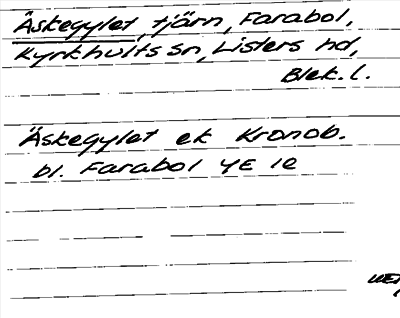 Äskegylet, tjärn, Farabol,
Kyrkhults sn, Listers hd,
Blek. l.
Äskegylet ek Kronob.
bl. Farabol 4E 1e